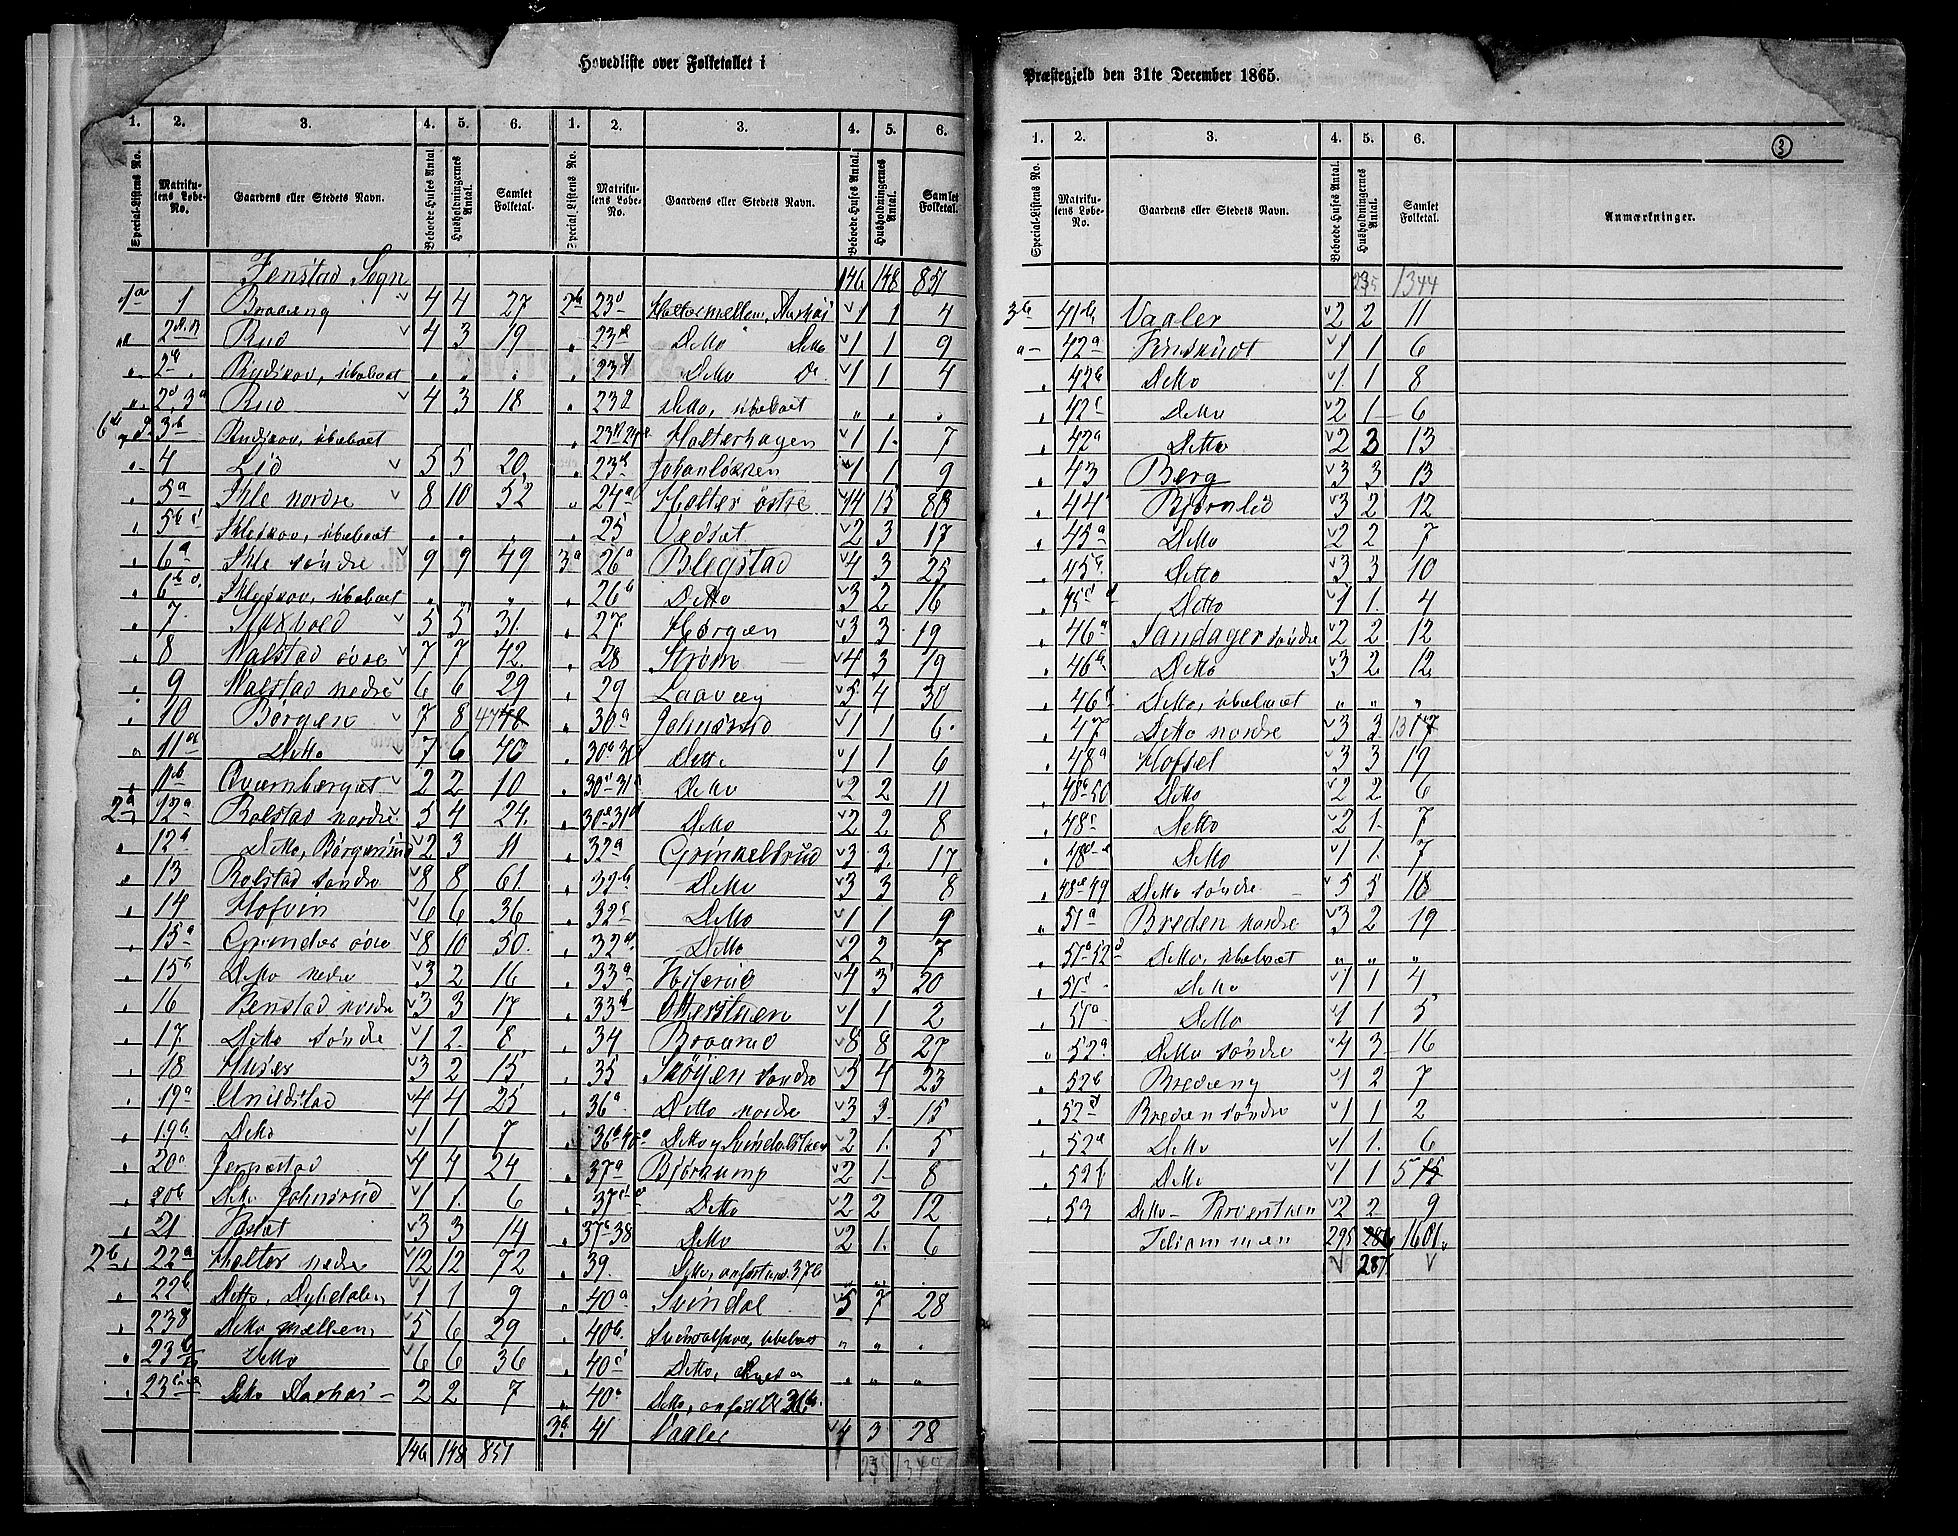 Hovedliste over Folketallet i
1. 2. 3. 4. 5. 6.
Special-Listens No. Matrikulens Løbe-No. Gaardens eller Stedets Navn. Beboede Huses Antal. Husholdningernes Antal. Samlet Folketal.
Fenstad Sogn
1a 1 Bradeng 4 4 27
Rud 4 3 19
Rudskov, ubeboet
2d, 3a Rud 4 3 18
3b Rudskov, ubeboet
4 Lid 5 5 20
5a Ihle nordre 8 10 52
Ihleskov, ubeboet
6a Ihle søndre 9 9 49
Ihleskov, ubeboet
7 5 5 31
8 Malstad øvre 7 7 42
9 Malstad nedre 6 6 29
10 Børgen 7 8 47
11a Detto 7 6 40
11b Qvernberget 2 2 10
2a 12a Bolstad nordre 5 4 24
12b Detto, Børgerud 2 3 11
13 Bolstad søndre 8 8 61
14 Hofvin 6 6 36
15a Grinder øvre 8 10 50
15b Detto nedre 3 2 16
16 Henstad nordre 3 3 17
17 Detto søndre 1 2 8
18 Huser 3 2 15
19a 4 4 25
19b Detto 1 1 7
20a Jerpestad 4 4 24
20b Detto Johnsrud 1 1 6
21 3 3 14
2b 22a Holter nedre 12 12 72
22b Detto, Dybdalen 1 1 9
23a Detto mellem 5 6 29
23b Detto 6 6 36
Detto Aashas 2 2 7
146 148 851
1. 2. 3. 4. 5. 6.
Special-Listens No. Matrikulens Løbe-No. Gaardens eller Stedets Navn. Beboede Huses Antal. Husholdningernes Antal. Samlet Folketal.
146 148 851
2b 23d Holter mellem, Aashas 1 1 4
23e Detto Detto 1 1 9
23f Detto Do 1 1 4
23g Detto, ubeboet
Holterhagen 1 1 7
Johanløkken 1 1 9
24a Holter østre 14 15 88
25 Vedset 2 3 17
3a 26a Blegstad 4 3 25
26b Detto 3 2 16
27 Hørgen 3 3 19
28 Strøm 4 3 19
29 Laaveg 5 4 30
30a Johnsrud 1 1 6
Detto 1 1 6
Detto 2 2 11
Detto 2 2 8
32a Grinkelsrud 3 3 17
32b Detto 3 3 8
32c Detto 1 1 9
32d Detto 2 2 7
33a 4 3 20
33b Otterstuen 1 1 2
34 Braarud 8 8 27
35 Skøyen søndre 5 4 23
36a Detto nordre 3 3 15
Detto og Svindalstuen 2 1 5
37a Bjørkump 2 1 8
Detto 2 2 12
Detto 2 1 6
39 Detto, anført und. 37b
40a Svindal 5 7 28
40b Svindalskov, ubeboet
40c Detto,
40d Detto, anført 36b
3b 41 Vaaler 4 3 28
235 1344
Præstegjeld den 31te December 1865.
1. 2. 3. 4. 5. 6.
3
Special-Listens No. Matrikulens Løbe-No. Gaardens eller Stedets Navn. Beboede Huses Antal. Husholdningernes Antal. Samlet Folketal. Anmærkninger.
235 1344
3b 41b Vaaler 2 2 11
42a 1 1 6
42b Detto 1 1 8
42c Detto 2 1 6
42d Detto 2 3 13
43 Berg 3 3 13
44 Bjørnlid 3 2 12
45a Detto 2 2 7
45b Detto 3 3 10
Detto 1 1 4
46a Sandager søndre 2 2 12
46b Detto 3 2 12
46c Detto, ubeboet
47 Detto nordre 3 3 13
48a Hofsel 3 3 19
48b 50 Detto 2 2 6
48c Detto 2 1 7
Detto 1 1 7
48e 49 Detto søndre 5 5 18
51a Breden nordre 3 2 19
Detto, ubeboet
Detto 1 1 4
Detto 1 1 5
52a Detto søndre 4 3 16
52b Bredeng 1 2 7
Breden søndre 1 1 2
52e Detto 1 1 6
52f Detto 1 1 5
53 Detto - 2 2 9
Tilsammen 295 286 1601
287